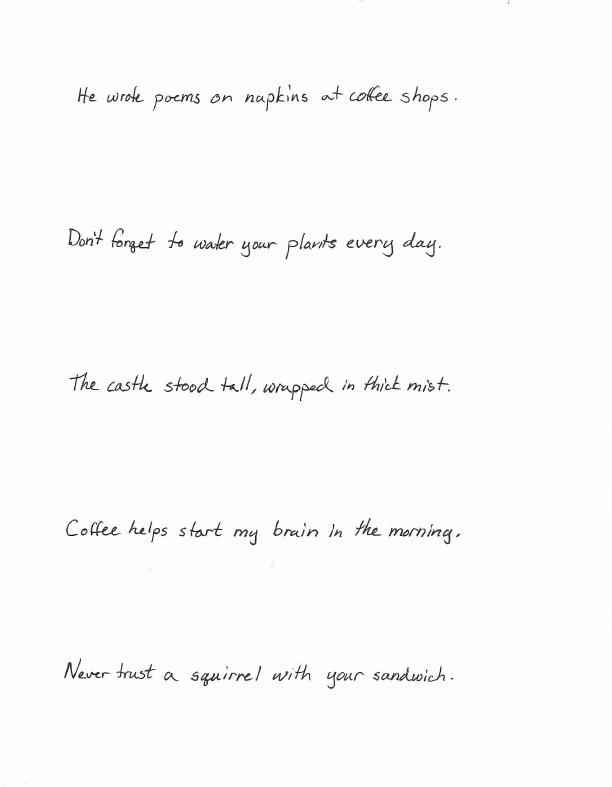 He wrote poems on napkins at coffee shops.
Don't forget to water your plants every day.
The castle stood tall, wrapped in thick mist.
Coffee helps start my brain in the morning.
Never trust a squirrel with your sandwich.